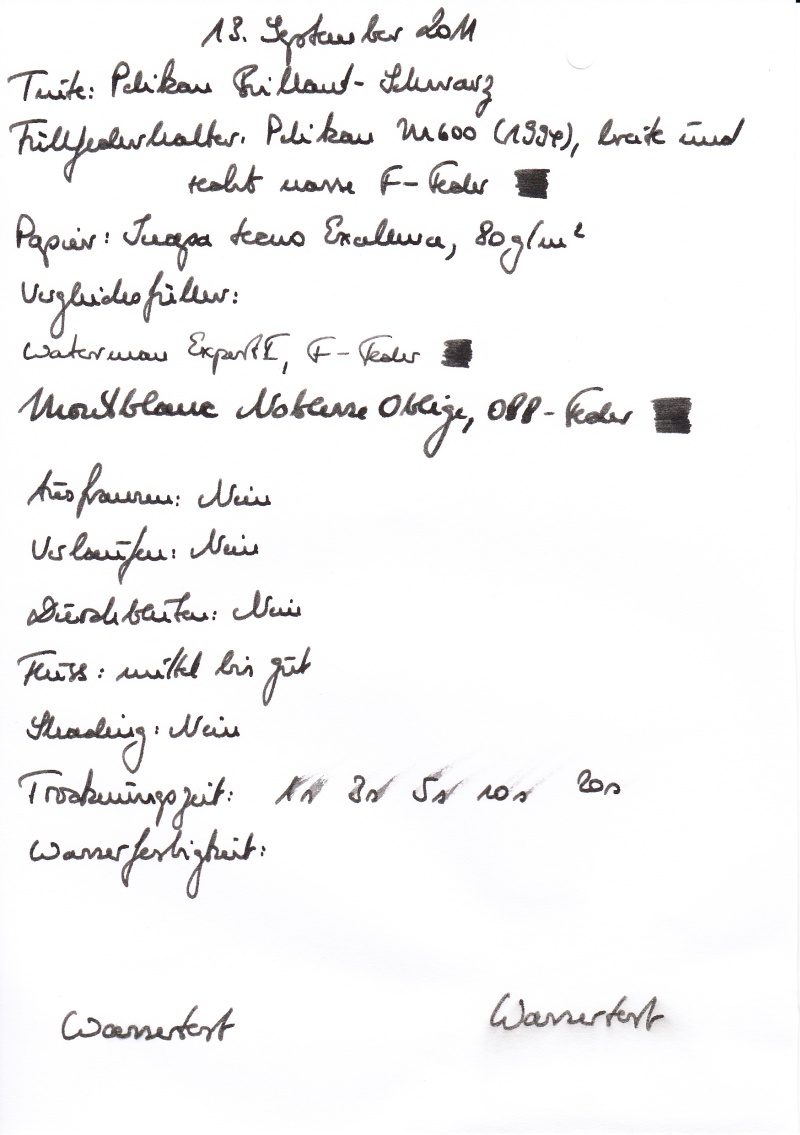 13. September 2011
Tinte: Pelikan Brillant-Schwarz
Füllfederhalter: Pelikan M600 (1994), breite und
recht nasse F-Feder
Papier: Inapa tecno Excellence, 80g/m²
Vergleichsfüller:
Waterman Expert I, F-Feder
Montblanc Noblesse Oblige, OBB-Feder
Ausfransen: Nein
Verlaufen: Nein
Durchbluten: Nein
Fluss: mittel bis gut
Shading: Nein
Trocknungszeit: 1s 3s 5s 10s 20s
Wasserfestigkeit:
Wassertest Wassertest